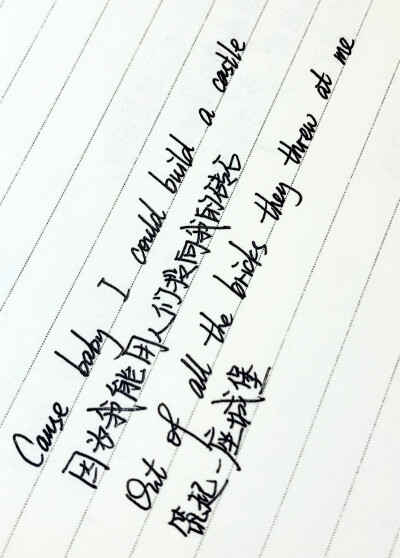 Cause baby I could build a castle
因为我能用人们投向我的砖石
Out of all the bricks they threw at me
筑起一座城堡